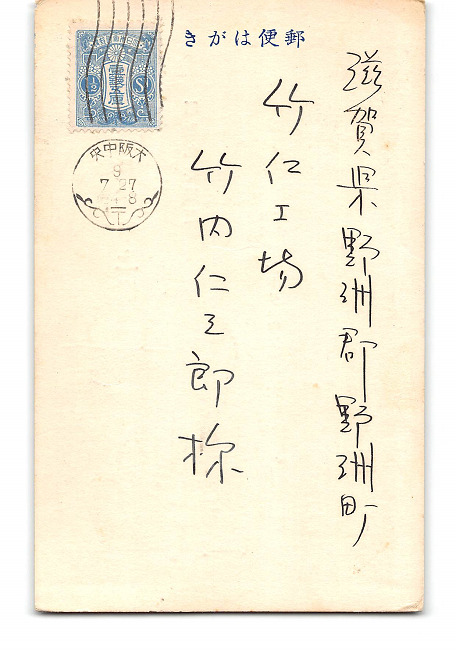 郵便はがき
大阪中央
9
7 27
滋賀県野洲郡野洲町
竹仁工場
竹内仁三郎様